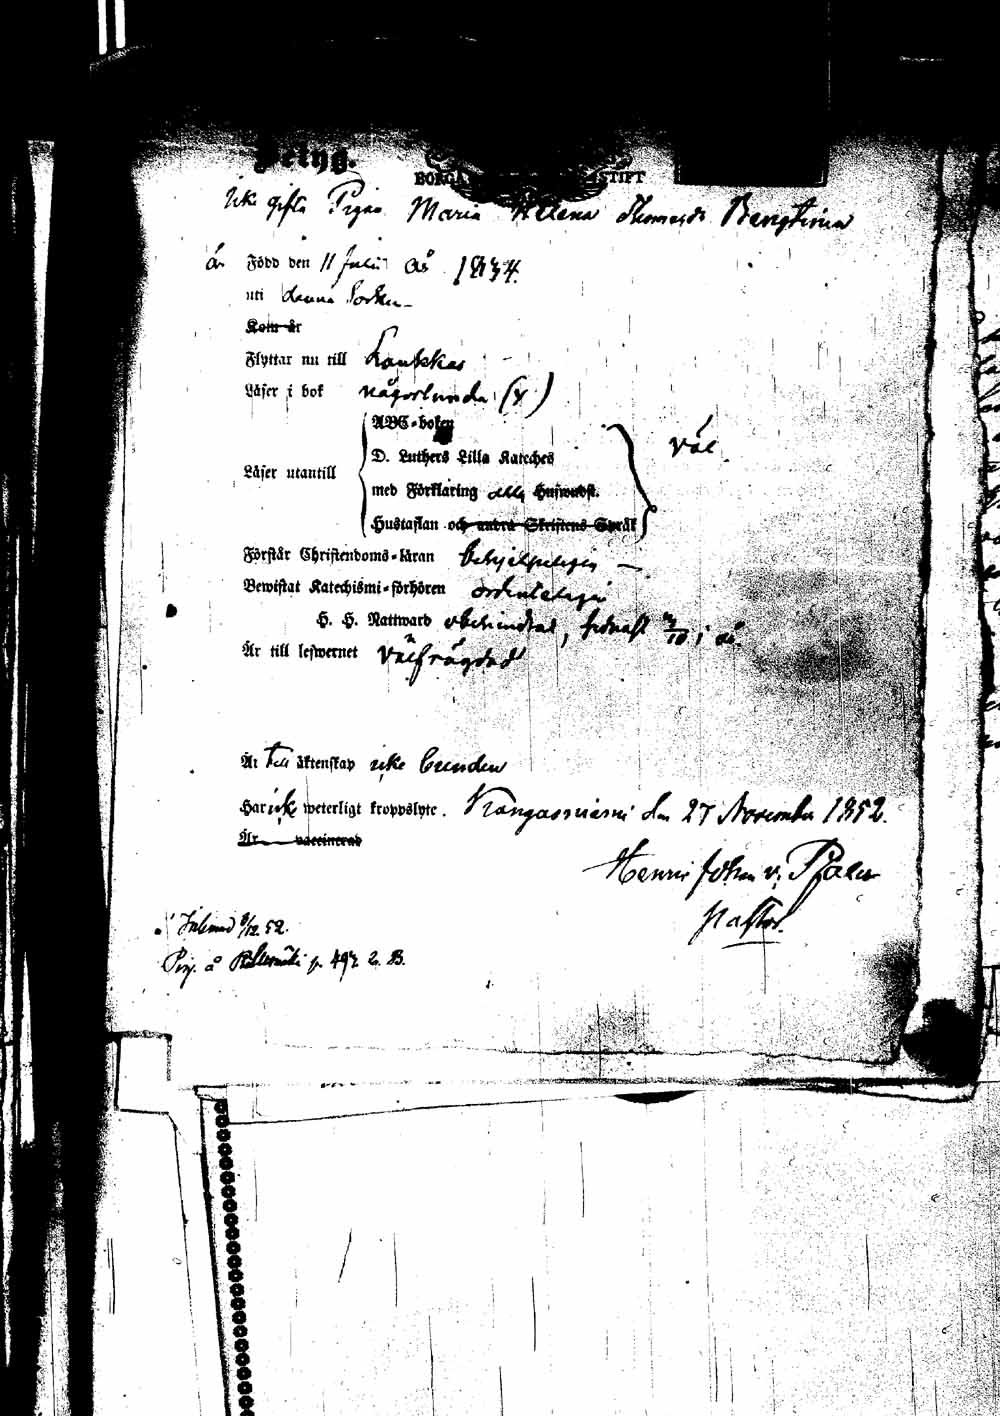 Betyg.
BORGÅ STIFT
Icke gifta Pigan Maria Helena Thomasdr Bengtsson
är Född den 11 Julii år 1834.
uti denna Socken
Kom år
Flyttar nu till
Läser i bok någorlunda (x)
ABC-boken
D. Luthers Lilla Kateches
väl
Läser utantill
med Förklaring Huswudst.
Hustaflan och andra Skriftens Språk
Förstår Christendoms-läran behjelpeligen
Bewistat Katechismi-förhören ordenteligen
H. H. Nattward obehindrad, sednast /10 i år.
Är till lefwernet välfrägdad
Är till äktenskap icke bunden
Har icke weterligt kroppslyte. Kangasniemi den 27 November 1852.
Är vaccinerad
Henric Johan v. Pfaler
Pastor.
Inlemnad 8/12 52.
Pig. å p. 497. 2. B.